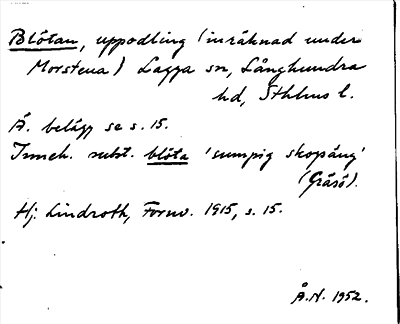 Blötan, uppodling (inräknad under
Morstena) Lagga sn, Långhundra
hd, Sthlms l.
Ä. belägg se s. 15.
Inneh. subst. blöta 'sumpig skogsäng'
(Gräsö).
Hj. Lindroth, Fornv. 1915, s. 15.
Å.N. 1952.